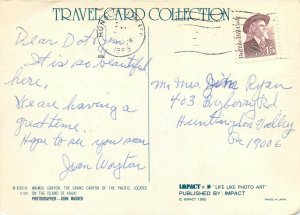 TRAVEL CARD COLLECTION
Dear Dot
It is so beautiful
here,
We are having a
great time.
Hope to see you soon
Jean
Mr Mrs Jim Ryan
403 Byberry Rd
Huntingdon Valley
Pa 19006
WAIMEA CANYON, THE GRAND CANYON OF THE PACIFIC, LOCATED
ON THE ISLAND OF KAUAI.
PHOTOGRAPHY - JOHN WAGNER
IMPACT "LIFE LIKE PHOTO ART"
PUBLISHED BY: IMPACT
© IMPACT 1985
PRINTED IN JAPAN